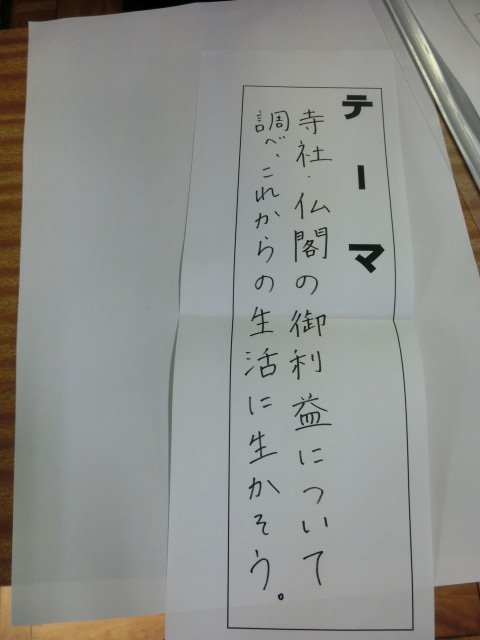 テーマ
寺社・仏閣の御利益について
調べ、これからの生活に生かそう。